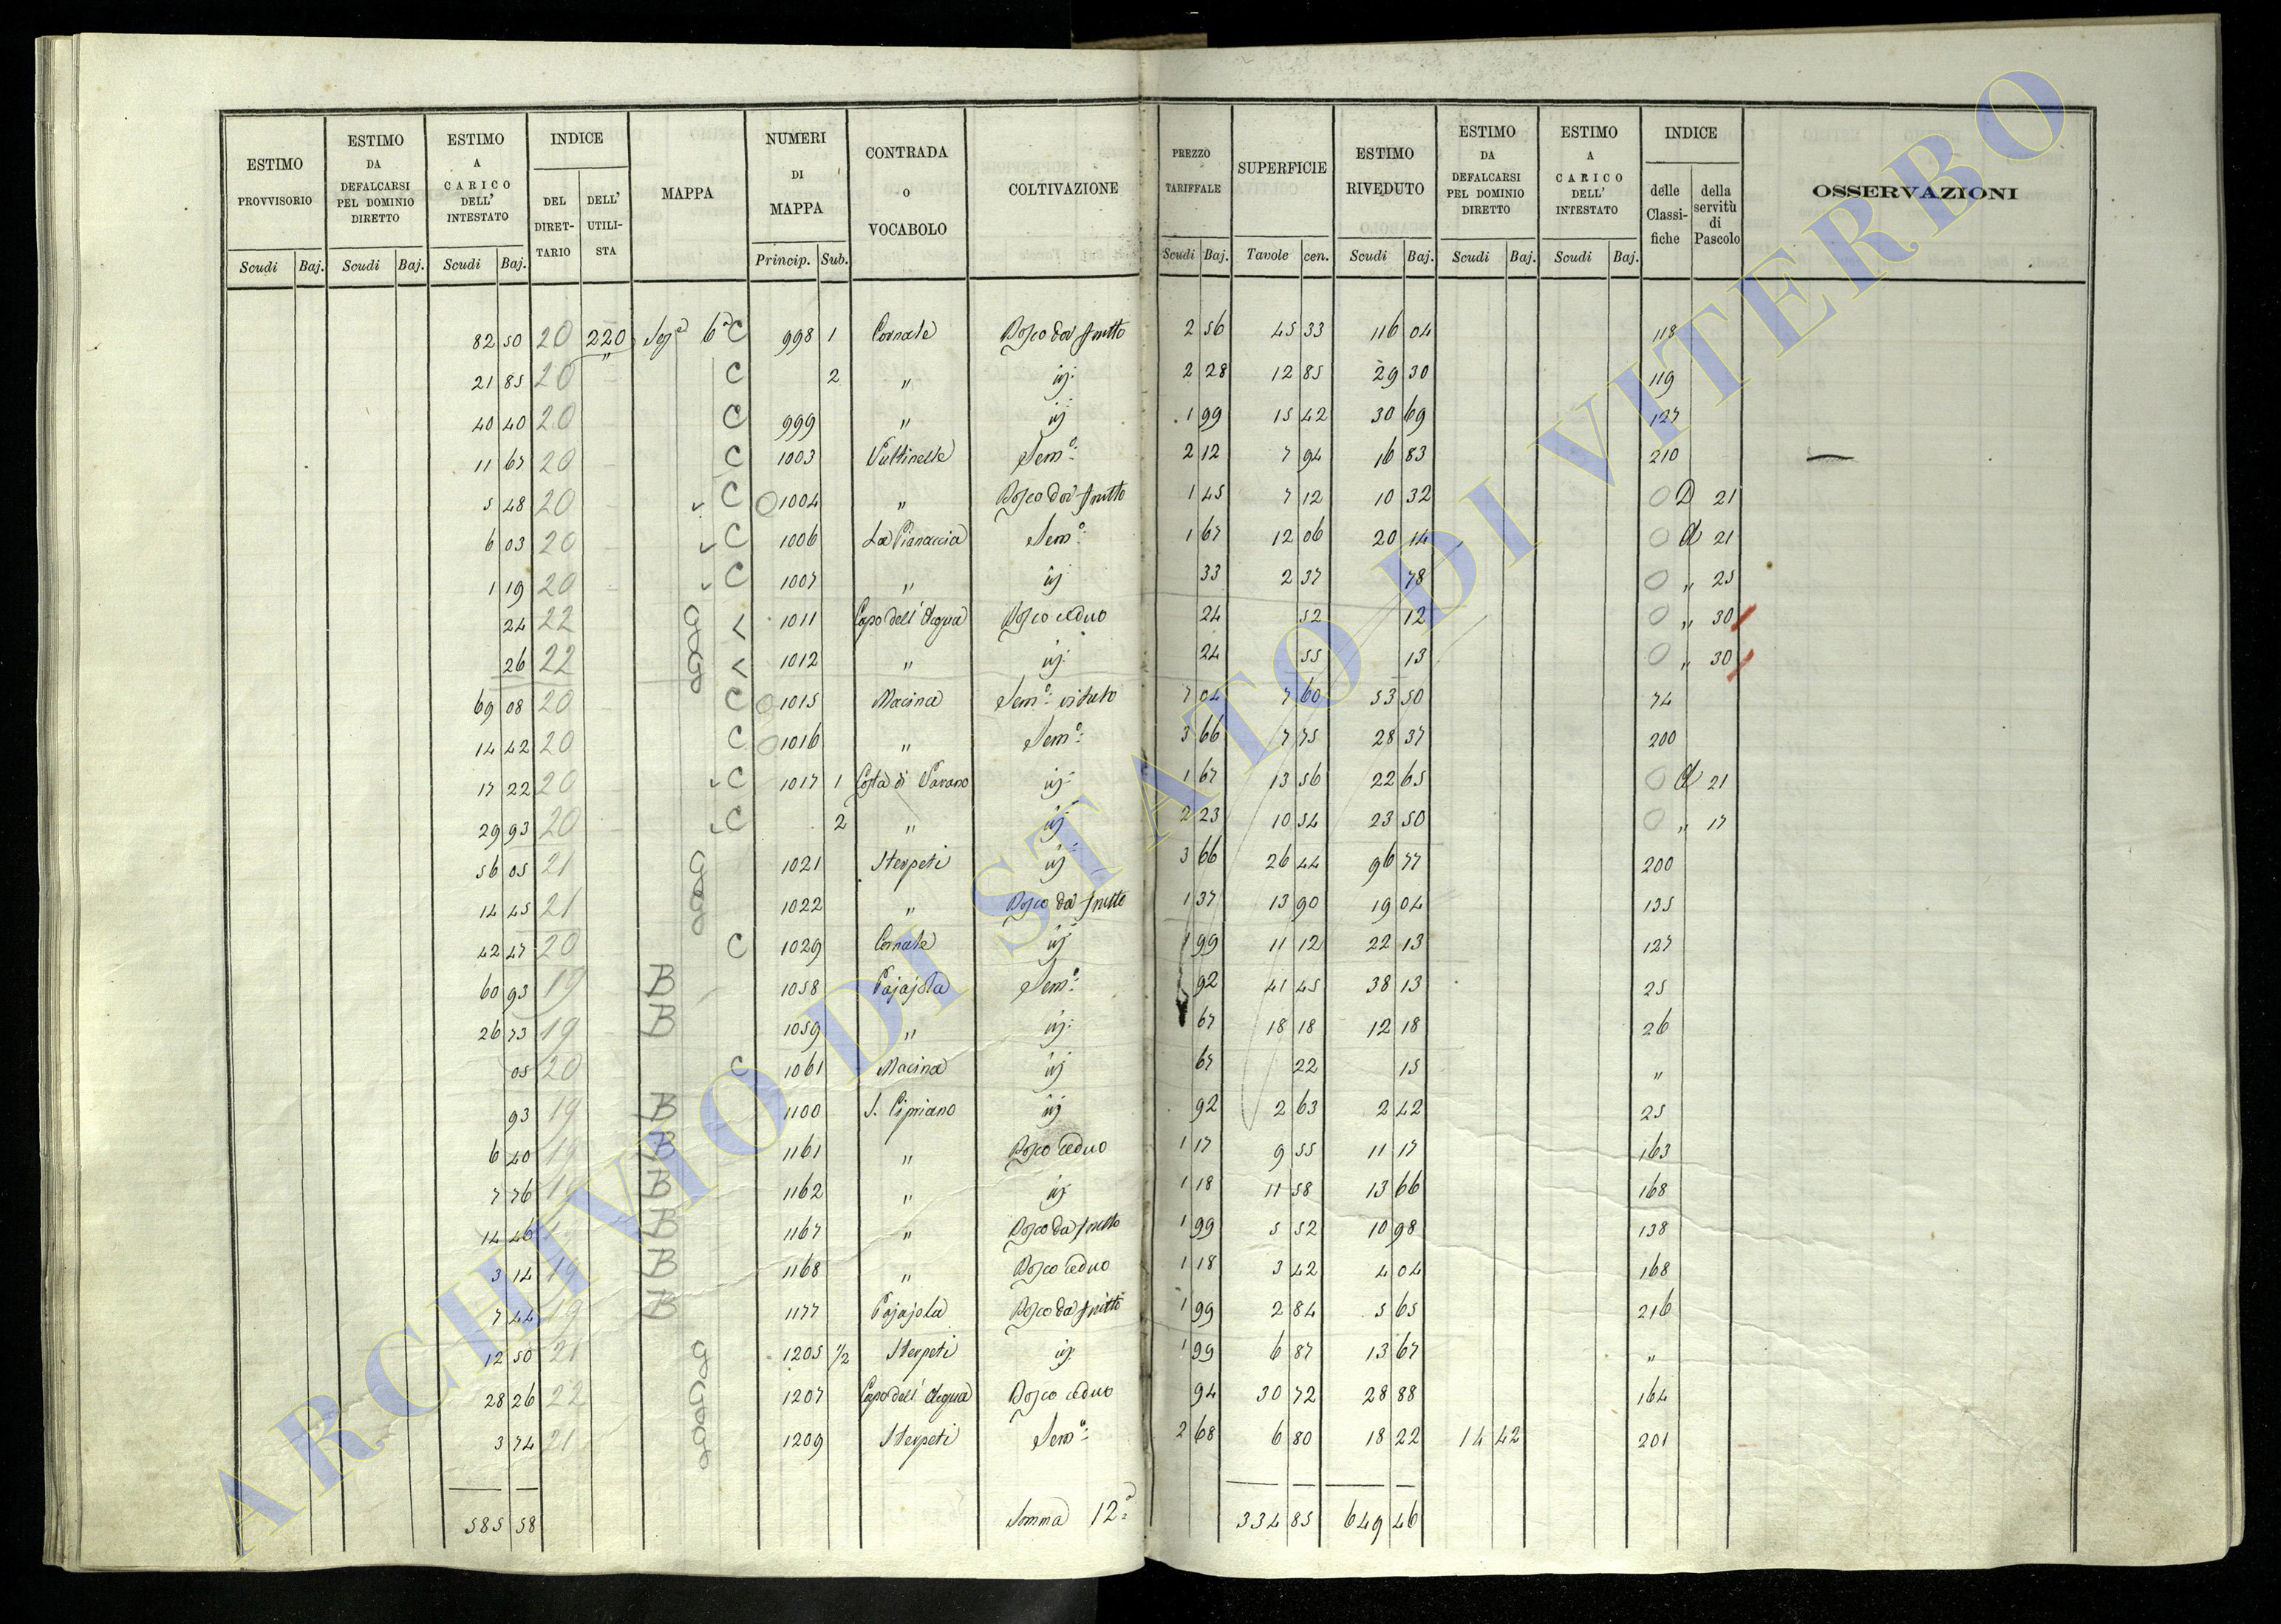 ESTIMO PROVVISORIO | ESTIMO DA DEFALCARSI PEL DOMINIO DIRETTO | ESTIMO A CARICO DELL' INTESTATO | INDICE DEL DIRETTARIO | DELL' UTILISTA | MAPPA | NUMERI DI MAPPA | CONTRADA O VOCABOLO | COLTIVAZIONE | PREZZO TARIFFALE | SUPERFICIE | ESTIMO RIVEDUTO | ESTIMO DA DEFALCARSI PEL DOMINIO DIRETTO | ESTIMO A CARICO DELL' INTESTATO | INDICE delle Classifiche | della servitù di Pascolo | OSSERVAZIONI
Scudi Baj. | Scudi Baj. | Scudi Baj. | Princip. Sub. | Scudi Baj. | Tavole cen. | Scudi Baj. | Scudi Baj. | Scudi Baj.
82 50 20 220 Sez. 6a C 998 1 Cornale Bosco da frutto 2 56 45 33 116 04 118
21 85 20 " C 2 " idj: 2 28 12 85 29 30 119
40 40 20 C 999 " idj 1 99 15 42 30 69 127
11 67 20 C 1003 Semo: 2 12 7 94 16 83 210
5 48 20 C 1004 " Bosco da frutto 1 45 7 12 10 32 0 D 21
6 03 20 C 1006 La Pianaccia Semo: 1 67 12 06 20 14 0 d 21
1 19 20 C 1007 " idj 33 2 37 78 0 " 25
24 22 1011 Capo dell' Acqua Bosco ceduo 24 52 12 0 " 30
26 22 1012 " idj: 24 55 13 0 " 30
69 08 20 C 1015 Macina Semo: vitato 7 04 7 60 53 50 74
14 42 20 C 1016 " Semo: 3 66 7 75 28 37 200
17 22 20 C 1017 1 Costa di Varano idj: 1 67 13 56 22 65 0 d 21
29 93 20 C 2 " idj 2 23 10 54 23 50 0 " 17
56 05 21 1021 Sterpeti idj 3 66 26 44 96 77 200
14 45 21 1022 " Bosco da frutto 1 37 13 90 19 04 135
42 47 20 C 1029 Cornale idj 1 99 11 12 22 13 127
60 93 19 B 1058 Pajajola Semo: 92 41 45 38 13 25
26 73 19 B 1059 " idj: 67 18 18 12 18 26
05 20 C 1061 Macina idj 67 22 15 "
93 19 B 1100 S. Cipriano idj 92 2 63 2 42 25
6 40 19 B 1161 " Bosco ceduo 1 17 9 55 11 17 163
7 76 19 B 1162 " idj 1 18 11 58 13 66 168
14 46 19 B 1167 " Bosco da frutto 1 99 5 52 10 98 138
3 14 19 B 1168 " Bosco ceduo 1 18 3 42 4 04 168
7 44 19 B 1177 Pajajola Bosco da frutto 1 99 2 84 5 65 216
12 50 21 1205 1/2 Sterpeti idj: 1 99 6 87 13 67 "
28 26 22 1207 Capo dell' Acqua Bosco ceduo 94 30 72 28 88 164
3 74 21 1209 Sterpeti Semo: 2 68 6 80 18 22 14 42 201
585 58 Somma 12a 334 85 649 46
ARCHIVIO DI STATO DI VITERBO